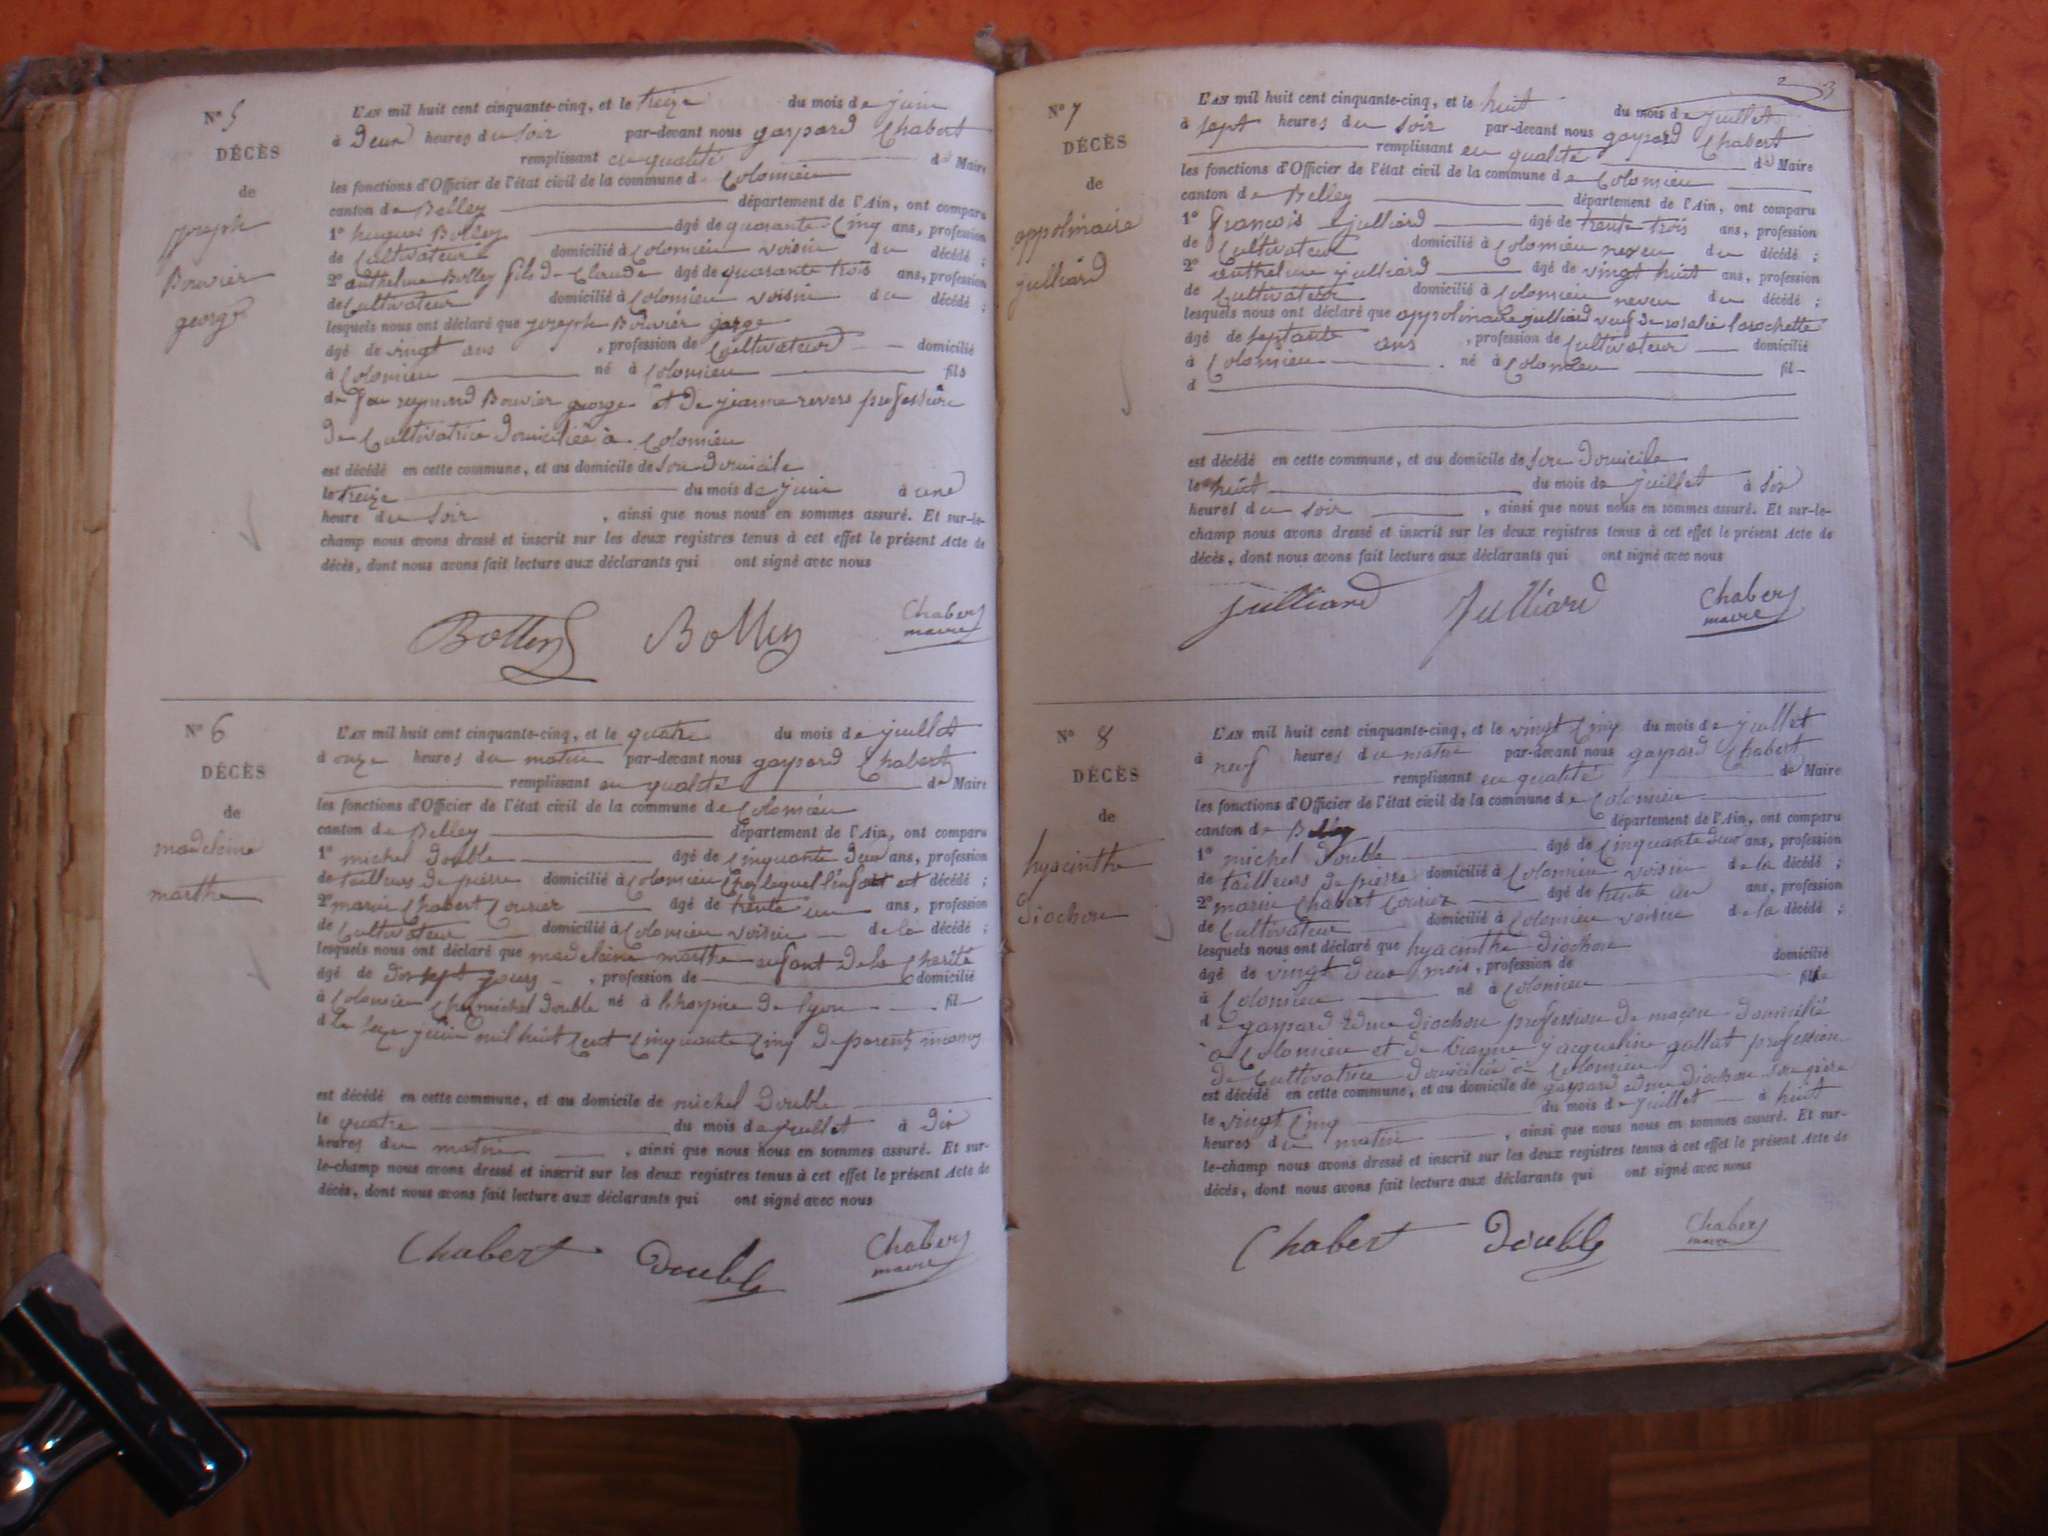 N° 5
DÉCÈS
de
joseph
Bouvier
george
L'AN mil huit cent cinquante-cinq, et le treize du mois de juin
à Deux heures du soir par-devant nous gaspard Chabert
remplissant en qualité de Maire
les fonctions d'Officier de l'état civil de la commune d Colomieu
canton de Belley département de l'Ain, ont comparu
1° hugues Bolley âgé de quarante Cinq ans, profession
de Cultivateur domicilié à Colomieu voisin du décédé ;
2° anthelme Bolley fils de Claude âgé de quarante trois ans, profession
de Cultivateur domicilié à Colomieu voisin du décédé ;
lesquels nous ont déclaré que joseph Bouvier george
âgé de vingt ans , profession de Cultivateur domicilié
à Colomieu né à Colomieu fils
de feu reymond Bouvier george et de jeanne revers profession
de Cultivatrice domiciliée à Colomieu
est décédé en cette commune, et au domicile de son domicile
le treize du mois de juin à une
heure du soir , ainsi que nous nous en sommes assuré. Et sur-le-
champ nous avons dressé et inscrit sur les deux registres tenus à cet effet le présent Acte de
décès, dont nous avons fait lecture aux déclarants qui ont signé avec nous
Bolley Bolley Chabert
maire
N° 6
DÉCÈS
de
madeleine
marthe
L'AN mil huit cent cinquante-cinq, et le quatre du mois de juillet
à onze heures du matin par-devant nous gaspard Chabert
remplissant en qualité de Maire
les fonctions d'Officier de l'état civil de la commune de Colomieu
canton de Belley département de l'Ain, ont comparu
1° michel Double âgé de Cinquante deux ans, profession
de tailleurs de pierre domicilié à Colomieu Chez lequel l'enfant est décédé ;
2° marin Chabert Courier âgé de trente un ans, profession
de Cultivateur domicilié à Colomieu voisin de la décédé ;
lesquels nous ont déclaré que madeleine marthe enfant de la Charité
âgé de dix sept jours , profession de domicilié
à Colomieu Chez michel Double né à l'hospice de lyon fil
d le seize juin mil huit Cent Cinquante Cinq de parents
est décédé en cette commune, et au domicile de michel Double
le quatre du mois de juillet à Dix
heures du matin , ainsi que nous nous en sommes assuré. Et sur-
le-champ nous avons dressé et inscrit sur les deux registres tenus à cet effet le présent Acte de
décès, dont nous avons fait lecture aux déclarants qui ont signé avec nous
Chabert Double Chabert
maire
2 3
N° 7
DÉCÈS
de
appolinaire
julliard
L'AN mil huit cent cinquante-cinq, et le huit du mois de juillet
à sept heures du soir par-devant nous gaspard Chabert
remplissant en qualité de Maire
les fonctions d'Officier de l'état civil de la commune de Colomieu
canton de Belley département de l'Ain, ont comparu
1° francois julliard âgé de trente trois ans, profession
de Cultivateur domicilié à Colomieu neveu du décédé ;
2° anthelme julliard âgé de vingt huit ans, profession
de Cultivateur domicilié à Colomieu neveu du décédé ;
lesquels nous ont déclaré que appolinaire julliard veuf de rosalie larochette
âgé de septante ans , profession de Cultivateur domicilié
à Colomieu né à Colomieu fil
d
est décédé en cette commune, et au domicile de son domicile
le huit du mois de juillet à six
heures du soir , ainsi que nous nous en sommes assuré. Et sur-le-
champ nous avons dressé et inscrit sur les deux registres tenus à cet effet le présent Acte de
décès, dont nous avons fait lecture aux déclarants qui ont signé avec nous
julliard Julliard Chabert
maire
N° 8
DÉCÈS
de
hyacinthe
diochon
L'AN mil huit cent cinquante-cinq, et le vingt Cinq du mois de juillet
à neuf heures du matin par-devant nous gaspard Chabert
remplissant en qualité de Maire
les fonctions d'Officier de l'état civil de la commune de Colomieu
canton de Belley département de l'Ain, ont comparu
1° michel Double âgé de Cinquante deux ans, profession
de tailleurs de pierre domicilié à Colomieu voisin de la décédé ;
2° marin Chabert Courier âgé de trente un ans, profession
de Cultivateur domicilié à Colomieu voisin de la décédé ;
lesquels nous ont déclaré que hyacinthe diochon
âgé de vingt deux mois, profession de domicilié
à Colomieu né à Colomieu fille
de gaspard edme diochon profession de maçon domicilié
à Colomieu et de jacqueline gallat profession
de Cultivatrice domiciliée à Colomieu
est décédé en cette commune, et au domicile de gaspard edme diochon son père
le vingt Cinq du mois de juillet à huit
heures du matin , ainsi que nous nous en sommes assuré. Et sur-
le-champ nous avons dressé et inscrit sur les deux registres tenus à cet effet le présent Acte de
décès, dont nous avons fait lecture aux déclarants qui ont signé avec nous
Chabert Double Chabert
maire